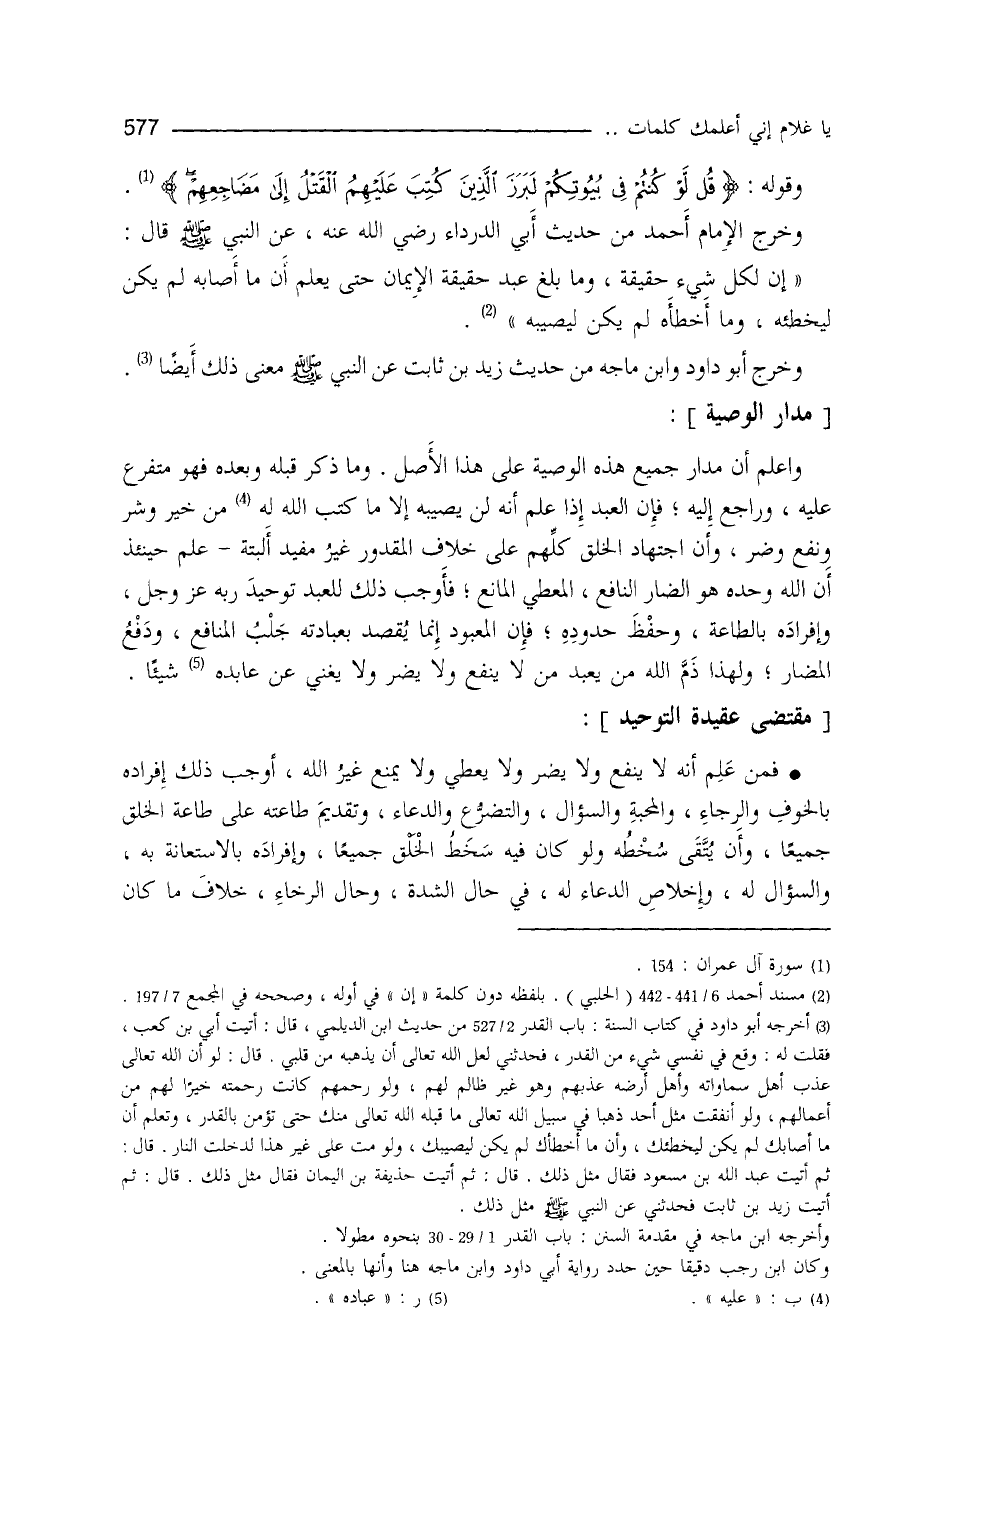 يا غلام إني أعلمك كلمات .. 577
وقوله : ﴿ قُل لَّوْ كُنتُمْ فِي بُيُوتِكُمْ لَبَرَزَ ٱلَّذِينَ كُتِبَ عَلَيْهِمُ ٱلْقَتْلُ إِلَىٰ مَضَاجِعِهِمْ ﴾ (1) .
وخرج الإمام أحمد من حديث أبي الدرداء رضي الله عنه ، عن النبي ﷺ قال :
« إن لكل شيء حقيقة ، وما بلغ عبد حقيقة الإيمان حتى يعلم أن ما أصابه لم يكن
ليخطئه ، وما أخطأه لم يكن ليصيبه » (2) .
وخرج أبو داود وابن ماجه من حديث زيد بن ثابت عن النبي ﷺ معنى ذلك أيضًا (3) .
[ مدار الوصية ] :
واعلم أن مدار جميع هذه الوصية على هذا الأصل . وما ذكر قبله وبعده فهو متفرع
عليه ، وراجع إليه ؛ فإن العبد إذا علم أنه لن يصيبه إلا ما كتب الله له (4) من خير وشر
ونفع وضر ، وأن اجتهاد الخلق كلِّهم على خلاف المقدور غيرُ مفيد ألبتة – علم حينئذ
أن الله وحده هو الضار النافع ، المعطي المانع ؛ فأوجب ذلك للعبد توحيدَ ربه عز وجل ،
وإفرادَه بالطاعة ، وحفْظَ حدودِهِ ؛ فإن المعبود إنما يُقصد بعبادته جَلْبُ المنافع ، ودَفْعُ
المضار ؛ ولهذا ذَمَّ الله من يعبد من لا ينفع ولا يضر ولا يغني عن عابده (5) شيئًا .
[ مقتضى عقيدة التوحيد ] :
● فمن عَلِم أنه لا ينفع ولا يضر ولا يعطي ولا يمنع غيرُ الله ، أوجب ذلك إفراده
بالخوفِ والرجاءِ ، والمحبةِ والسؤال ، والتضرُّع والدعاء ، وتقديمَ طاعته على طاعة الخلق
جميعًا ، وأن يُتَّقَى سُخْطُه ولو كان فيه سَخَطُ الخَلْق جميعًا ، وإفرادَه بالاستعانة به ،
والسؤال له ، وإخلاصِ الدعاء له ، في حال الشدة ، وحال الرخاءِ ، خلافَ ما كان
(1) سورة آل عمران : 154 .
(2) مسند أحمد 6/ 441 - 442 ( الحلبي ) . بلفظه دون كلمة « إن » في أوله ، وصححه في المجمع 7/ 197 .
(3) أخرجه أبو داود في كتاب السنة : باب القدر 2/ 527 من حديث ابن الديلمي ، قال : أتيت أبي بن كعب ،
فقلت له : وقع في نفسي شيء من القدر ، فحدثني لعل الله تعالى أن يذهبه من قلبي . قال : لو أن الله تعالى
عذب أهل سماواته وأهل أرضه عذبهم وهو غير ظالم لهم ، ولو رحمهم كانت رحمته خيرًا لهم من
أعمالهم ، ولو أنفقت مثل أحد ذهبا في سبيل الله تعالى ما قبله الله تعالى منك حتى تؤمن بالقدر ، وتعلم أن
ما أصابك لم يكن ليخطئك ، وأن ما أخطأك لم يكن ليصيبك ، ولو مت على غير هذا لدخلت النار . قال :
ثم أتيت عبد الله بن مسعود فقال مثل ذلك . قال : ثم أتيت حذيفة بن اليمان فقال مثل ذلك . قال : ثم
أتيت زيد بن ثابت فحدثني عن النبي ﷺ مثل ذلك .
وأخرجه ابن ماجه في مقدمة السنن : باب القدر 1/ 29 - 30 بنحوه مطولا .
وكان ابن رجب دقيقا حين حدد رواية أبي داود وابن ماجه هنا وأنها بالمعنى .
(4) ب : « عليه » . (5) ر : « عباده » .